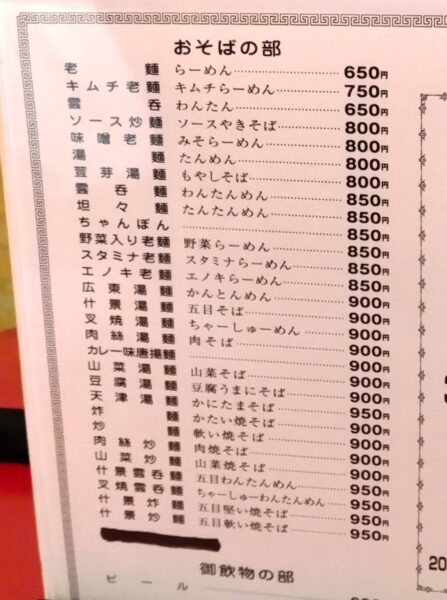 おそばの部
老麺 らーめん 650円
キムチ老麺 キムチらーめん 750円
雲呑 わんたん 650円
ソース炒麺 ソースやきそば 800円
味噌老麺 みそらーめん 800円
湯麺 たんめん 800円
荳芽湯麺 もやしそば 800円
雲呑麺 わんたんめん 850円
坦々麺 たんたんめん 850円
ちゃんぽん 850円
野菜入り老麺 野菜らーめん 850円
スタミナ老麺 スタミナらーめん 850円
エノキ老麺 エノキらーめん 850円
広東湯麺 かんとんめん 900円
什景湯麺 五目そば 900円
叉焼湯麺 ちゃーしゅーめん 900円
肉絲湯麺 肉そば 900円
カレー味唐揚麺 900円
山菜湯麺 山菜そば 900円
豆腐湯麺 豆腐うまにそば 900円
天津湯麺 かにたまそば 950円
炸麺 かたい焼そば 900円
炒麺 軟い焼そば 900円
肉絲炒麺 肉焼そば 900円
山菜炒麺 山菜焼そば 900円
什景雲呑麺 五目わんたんめん 950円
叉焼雲呑麺 ちゃーしゅーわんたんめん 950円
什景炸麺 五目堅い焼そば 950円
什景炒麺 五目軟い焼そば 950円
御飲物の部
ビール
20